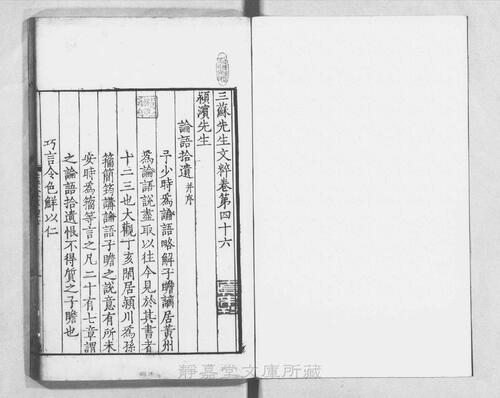 三蘇先生文粹卷第四十六
潁濱先生
論語拾遺 并序
予少時爲論語略解子瞻謫居黃州
爲論語說盡取以往今見於其書者
十二三也大觀丁亥閑居潁川爲孫
籀簡筠講論語子瞻之說意有所未
安時爲籀等言之凡二十有七章謂
之論語拾遺恨不得質之子瞻也
巧言令色鮮以仁
靜嘉堂文庫所藏